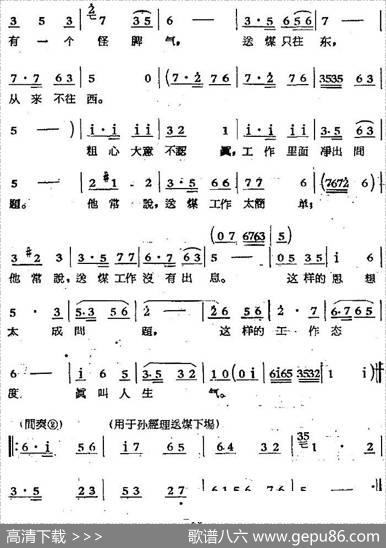 3 5 3 | 7 3 5 | 6 — | 3·5 6 5 6 | 3 5 3 |
有一个怪脾气，送煤只往东，
7·7 6 3 | 5 0 | (7·2 7 6 | 7·2 7 6 | 3535 6 3 |
从来不往西。
5 — ) | i·i i i | 3 2 1 | i·i i i | 3·5 6 3 |
粗心大意不認眞，工作里面凈出問
5 — | 2 1 — | 3·5 6 6 | 7 7 6 | (7672 6 |
題。他常說，送煤工作太簡單；
(0 7 6763 | 5 )
3 #2 3 | 3·5 7 7 | 6·7 6 3 | 5 — | 0 5 3 5 | i 6 |
他常說，送煤工作沒有出息。这样的思想
5 · 3 | 5·3 5 6 | 2 — | 2 6 5 6 | 2 · 7 | 6·7 6 5 |
太成問題，这样的工作态
6 — | i 6 5 | 3·5 3 2 | 1 0 (0 i | 6i65 3532 | 1 i ) |
度眞叫人生气。
(間奏②) (用于孙經理送煤下場)
6·i 5 6 | i 7 6 5 | 6 4 3 2 | 1 · 2 |
3·5 2 3 | 5 3 2 7 | 6 1 5 6 7 6 | 5 — |
高清下载 >>> 歌谱八六 www.gepu86.com